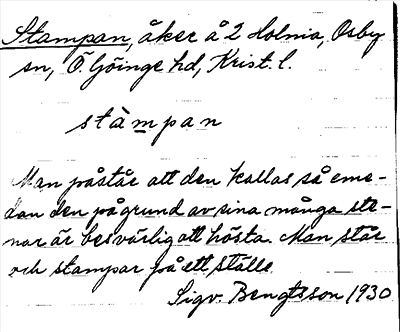 Stampan, åker å 2 Holmia, Osby
sn, Ö. Göinge hd, Krist. l.
stàmpan
Man påstår att den kallas så eme-
dan den på grund av sina många ste-
nar är besvärlig att hösta. Man står
och stampar på ett ställe
Sigv. Bengtsson 1930